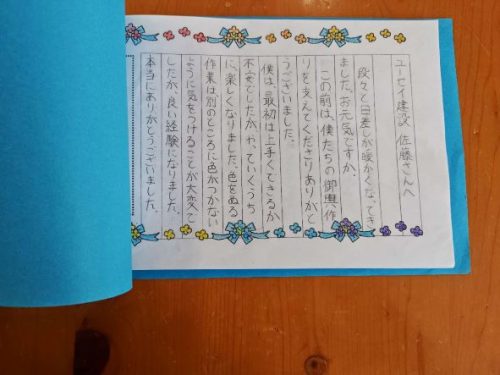 ユーセイ建設 佐藤さんへ
段々と日差しが暖かくなってき
ました。お元気ですか。
この前は、僕たちの御輿作
りを支えてくださりありがと
うございました。
僕は、最初は上手くできるか
不安でしたがやっていくうち
に、楽しくなりました。色をぬる
作業は別のところに色がつかない
ように気をつけることが大変で
したが、良い経験になりました。
本当にありがとうございました。